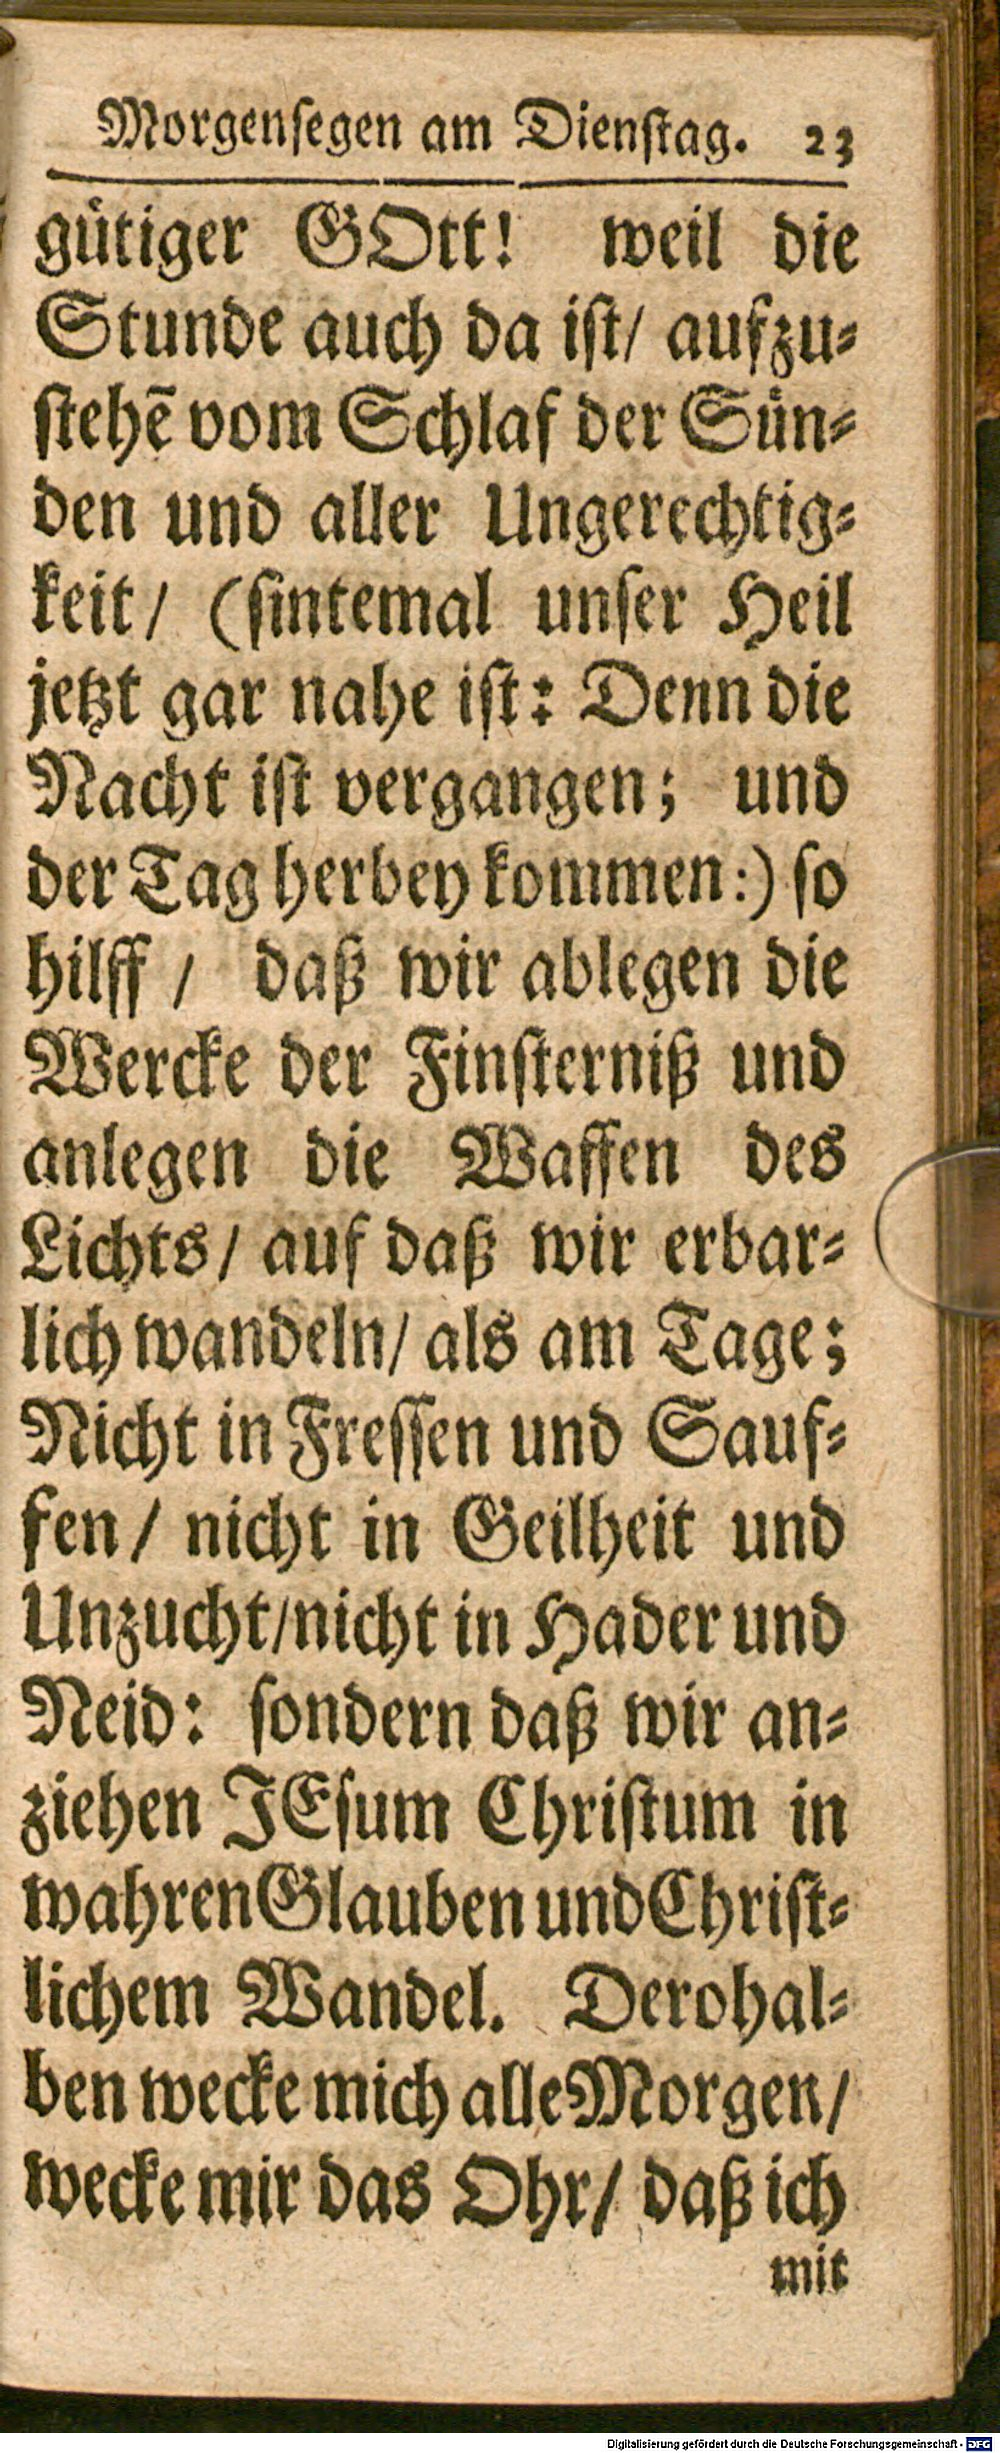 Morgensegen am Dienstag. 23
gütiger GOtt! weil die
Stunde auch da ist/ aufzu⸗
stehē vom Schlaf der Sün⸗
den und aller Ungerechtig⸗
keit/ (sintemal unser Heil
jetzt gar nahe ist: Denn die
Nacht ist vergangen; und
der Tag herbey kommen:) so
hilff / daß wir ablegen die
Wercke der Finsterniß und
anlegen die Waffen des
Lichts/ auf daß wir erbar⸗
lich wandeln/ als am Tage;
Nicht in Fressen und Sauf⸗
fen/ nicht in Geilheit und
Unzucht/nicht in Hader und
Neid: sondern daß wir an⸗
ziehen JEsum Christum in
wahren Glauben und Christ⸗
lichem Wandel. Derohal⸗
ben wecke mich alle Morgen/
wecke mir das Ohr/ daß ich
mit
Digitalisierung gefördert durch die Deutsche Forschungsgemeinschaft - DFG